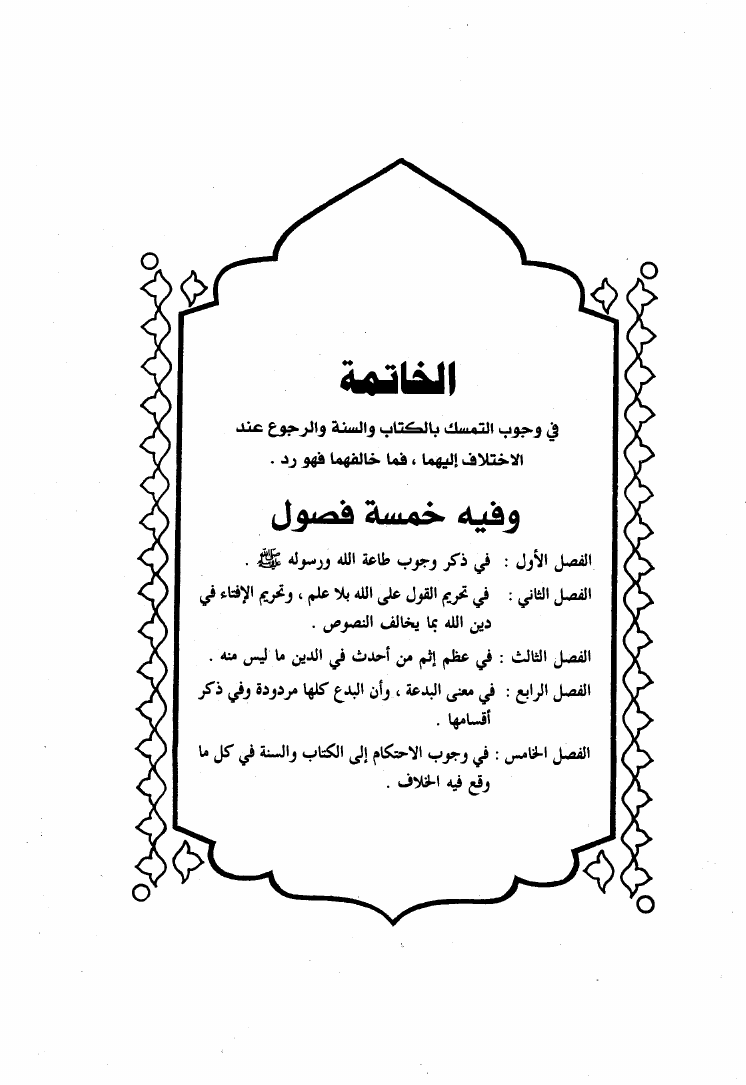 الخاتمة
في وجوب التمسك بالكتاب والسنة والرجوع عند
الاختلاف إليهما ، فما خالفهما فهو رد .
وفيه خمسة فصول
الفصل الأول : في ذكر وجوب طاعة الله ورسوله ﷺ .
الفصل الثاني : في تحريم القول على الله بلا علم ، وتحريم الإفتاء في
دين الله بما يخالف النصوص .
الفصل الثالث : في عظم إثم من أحدث في الدين ما ليس منه .
الفصل الرابع : في معنى البدعة ، وأن البدع كلها مردودة وفي ذكر
أقسامها .
الفصل الخامس : في وجوب الاحتكام إلى الكتاب والسنة في كل ما
وقع فيه الخلاف .